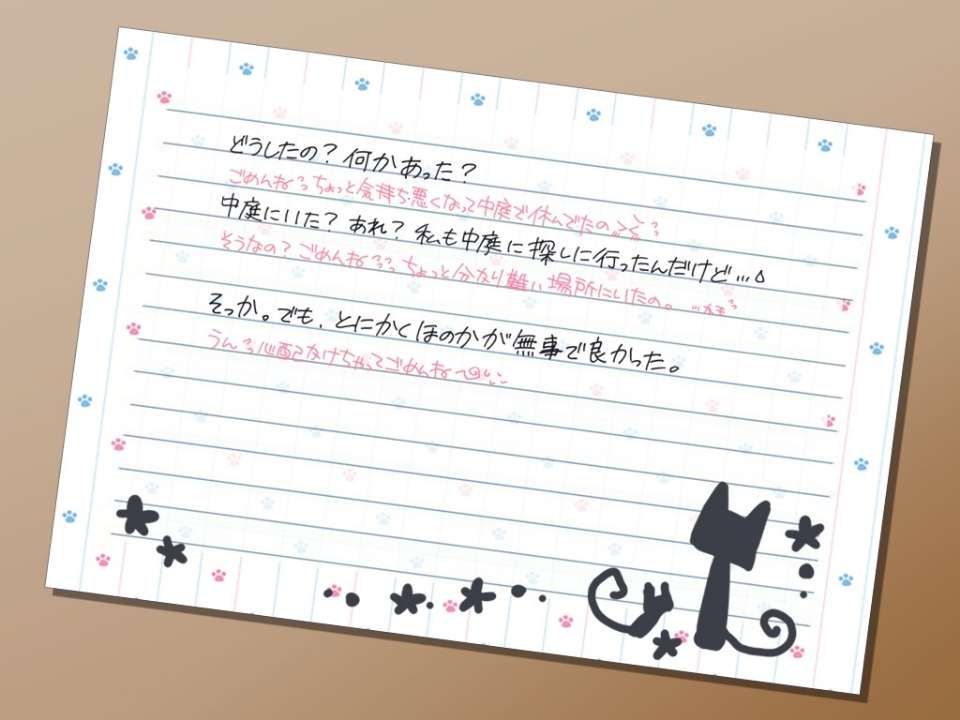 どうしたの？何かあった？
ごめんねっっちょっと気持ち悪くなって中庭で休んでたの
中庭にいた？あれ？私も中庭に探しに行ったんだけど…
そうなの？ごめんねっっちょっと分かり難い場所にいたの。…かもっ
そっか。でも、とにかくほのかが無事で良かった。
うんっ心配かけちゃってごめんね